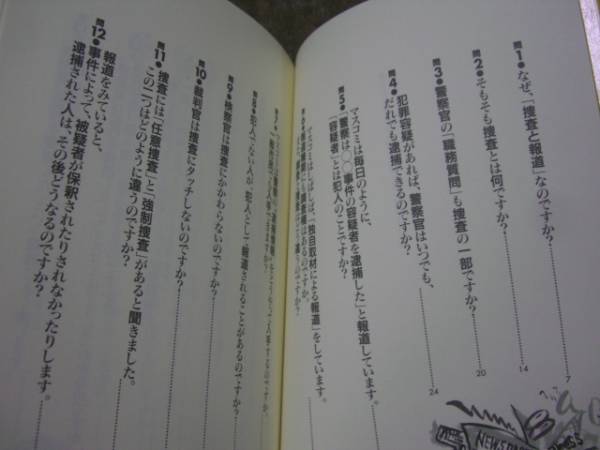 問1●なぜ、「捜査と報道」なのですか?
7
問2●そもそも捜査とは何ですか?
14
問3●警察官の「職務質問」も捜査の一部ですか?
20
問4●犯罪容疑があれば、警察官はいつでも、
だれでも逮捕できるのですか?
24
問5●マスコミは毎日のように、
「警察は、○○事件の容疑者を逮捕した」と報道しています。
「容疑者」とは犯人のことですか?
マスコミはしばしば、「独自取材による報道」をしています。
問8●犯人でない人が、犯人として報道されることがあるのですか?
問9●検察官は捜査にかかわらないのですか?
問10●裁判官は捜査にタッチしないのですか?
問11●捜査には「任意捜査」と「強制捜査」があると聞きました。
この二つはどのように違うのですか?
問12●報道をみていると、
事件によって、被疑者が保釈されたりされなかったりします。
逮捕された人は、その後どうなるのですか?